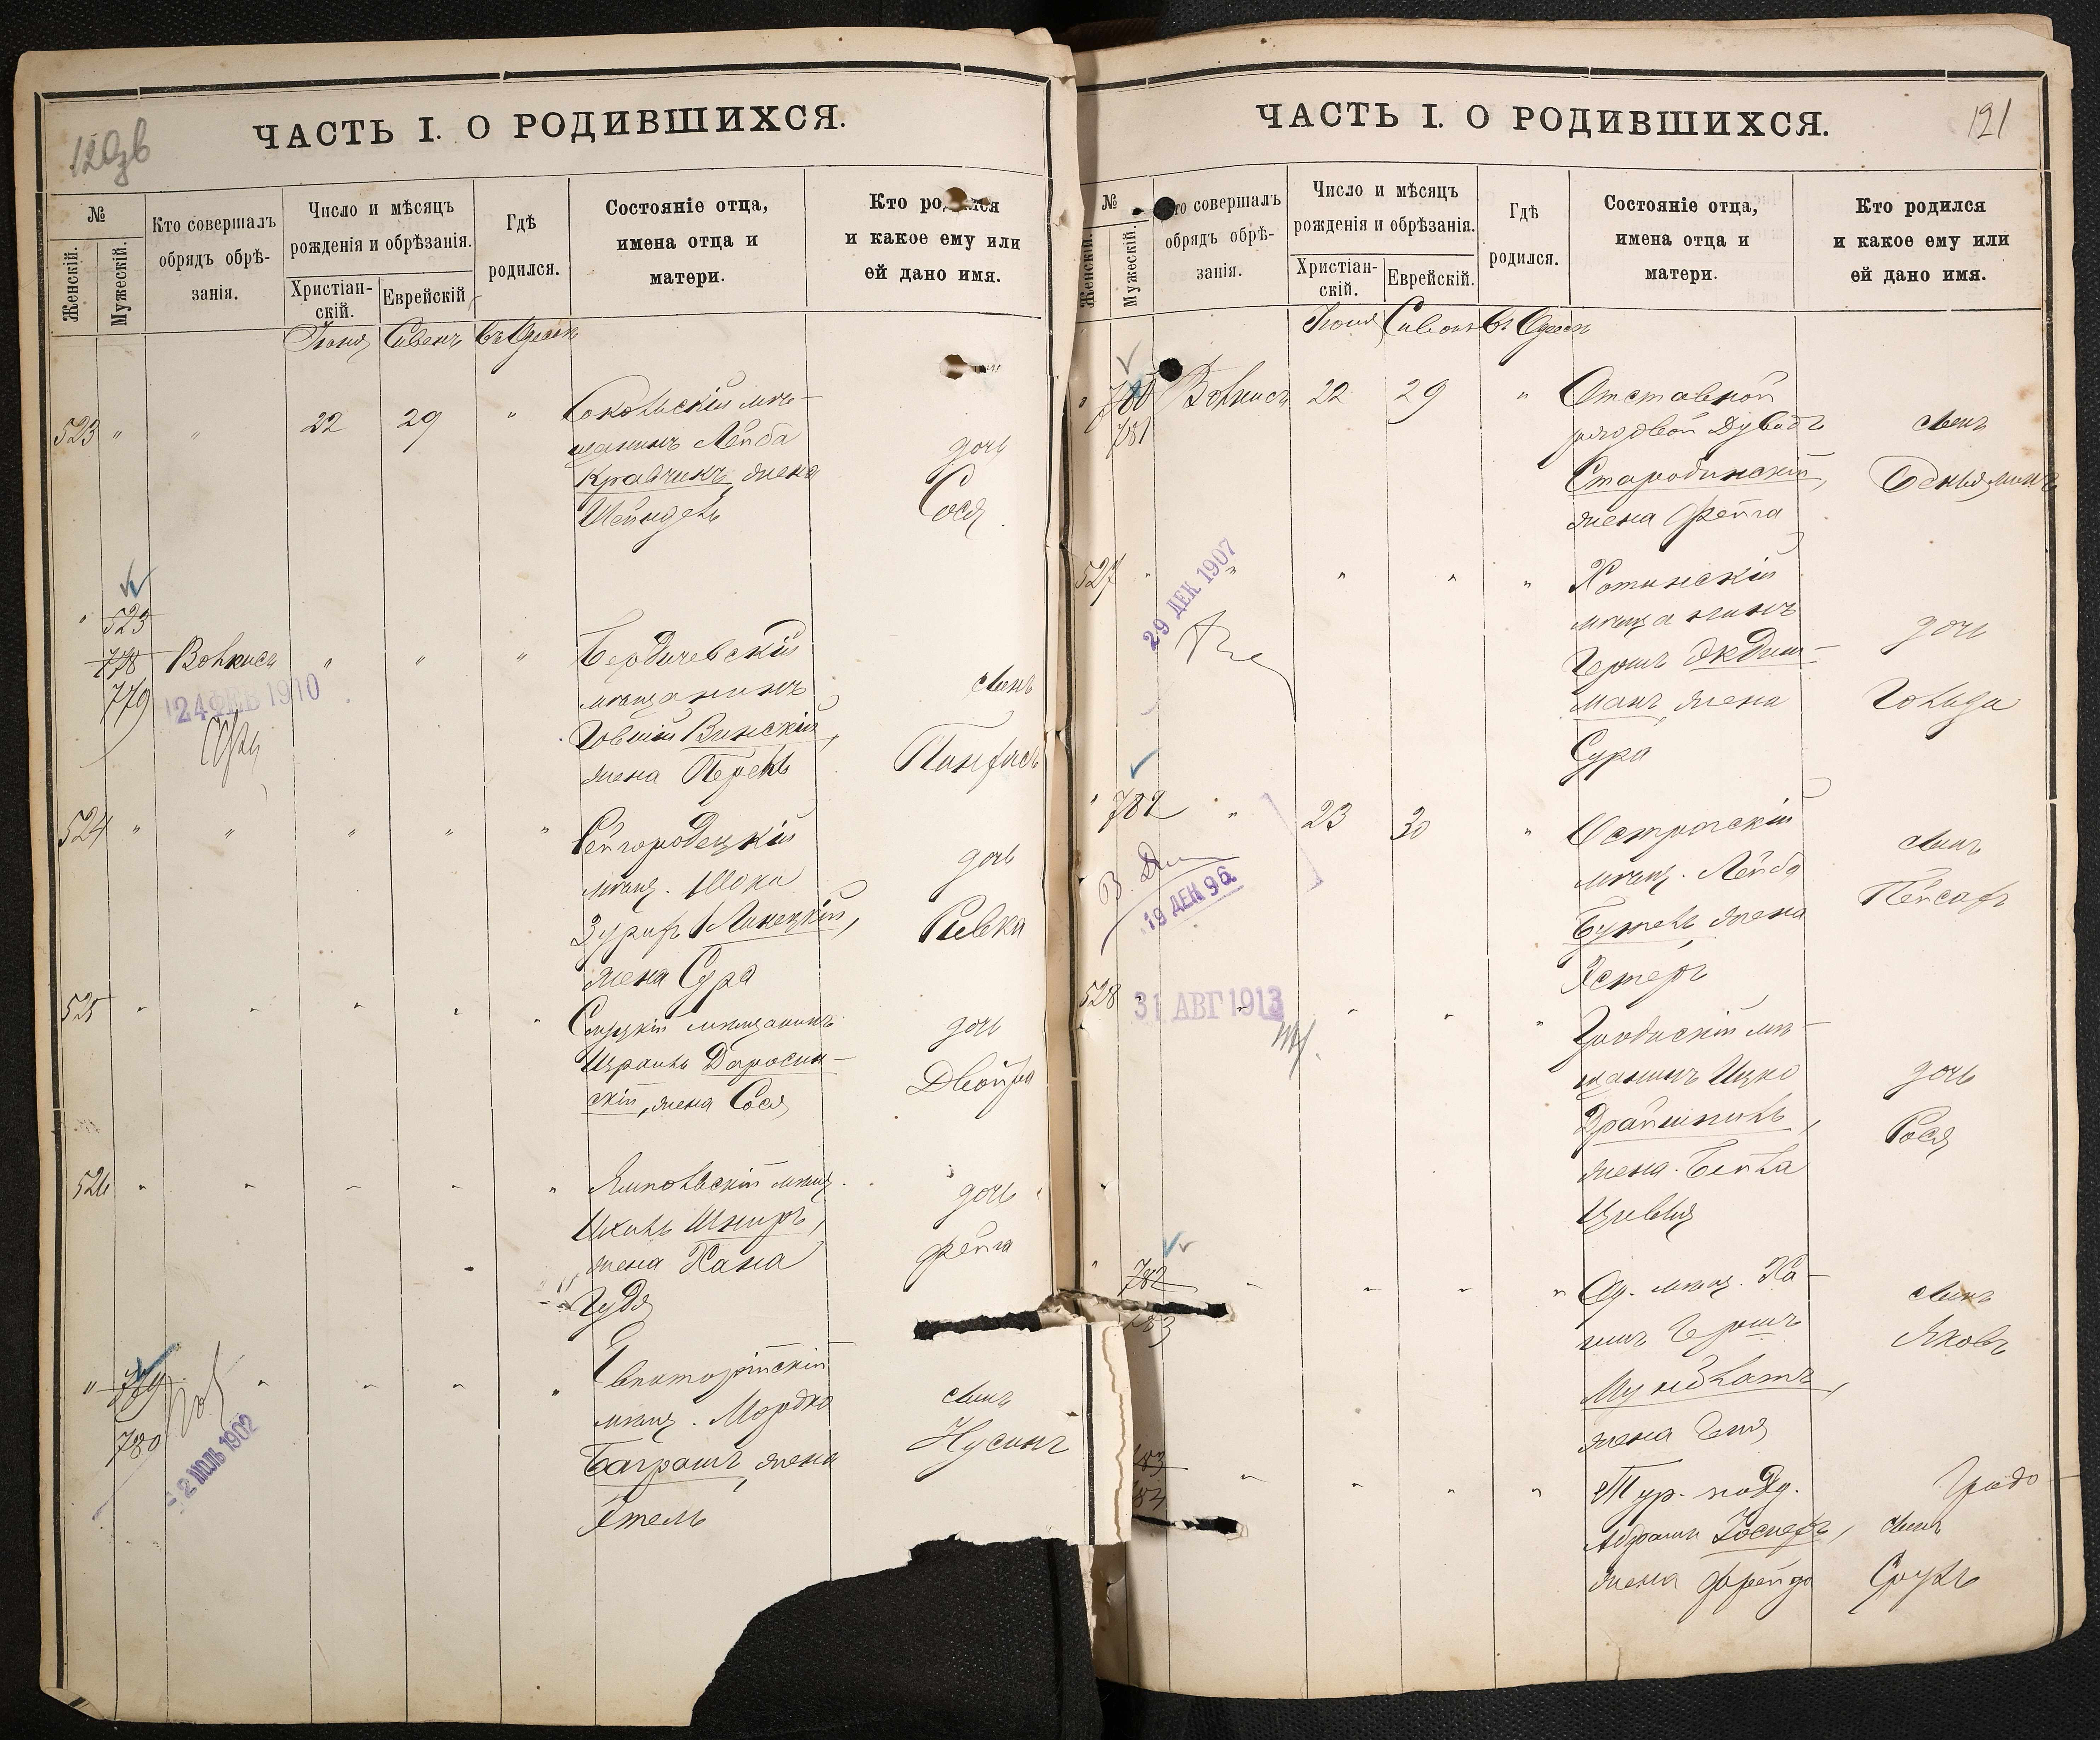 120зв
ЧАСТЬ I. О РОДИВШИХСЯ.
№
Женскій.
Мужескій.
Кто совершалъ
обрядъ обрѣ-
занія.
Число и мѣсяцъ
рожденія и обрѣзанія.
Христіан-
скій.
Еврейскій
Гдѣ
родился.
Состояніе отца,
имена отца и
матери.
Кто родился
и какое ему или
ей дано имя.
Іюня Сивонъ въ Одессѣ
Сокольскій мѣ-
523 " " 22 29 " щанинъ Лейба дочь
Кравчикъ, жена Сося
Шейндель
" 523
778 Вольнисъ " " " Бердичевскій
779 мѣщанинъ сынъ
24 ФЕВ 1910
Іовшій Винскій, Пинхасъ
жена Перель
524 " " " " "
мѣщ. Шока дочь
Зурихъ Линецкій, Ривка
жена Сура
525 " " " " " Слуцкій мѣщанинъ дочь
Израиль Доросин- Двойра
скій, жена Сося
526 " " " " " Ямпольскій мѣщ. дочь
Ихиль Шниръ, Фейга
жена Хана
Гудя
" 779 " " " " Евпаторійскій
780 мѣщ. Мордко сынъ
Баграшъ, жена Нусинъ
Этель
2 ИЮЛЬ 1902
121
ЧАСТЬ I. О РОДИВШИХСЯ.
№
Женскій.
Мужескій.
Кто совершалъ
обрядъ обрѣ-
занія.
Число и мѣсяцъ
рожденія и обрѣзанія.
Христіан-
скій.
Еврейскій.
Гдѣ
родился.
Состояніе отца,
имена отца и
матери.
Кто родился
и какое ему или
ей дано имя.
Іюня Сивонъ въ Одессѣ
" 780 Вольнисъ 22 29 " Отставной
781 рядовой Дувидъ сынъ
Стародинскій, Беньяминъ
жена Фейга
527 " " " " " Хотинскій
29 ДЕК 1907
мѣщанинъ дочь
Гершъ Экдиш-
манъ, жена Гольда
Сура
" 782 " 23 30 " Острогскій сынъ
мѣщ. Лейба Пейсахъ
19 ДЕК 96
Бужель, жена
Эстеръ
528 " " " " " Гродискій мѣ-
31 АВГ 1913
щанинъ Ицко дочь
Драйшпиль, Рося
жена Бейла
Цивья
" 782 " " " " Од. мѣщ. Ха- сынъ
783 имъ Гершъ Яковъ
Мундлатъ,
жена Геня
783 " " " " Тур. подд.
784 Абрамъ Іосифъ, сынъ
жена Фрейда Сруль